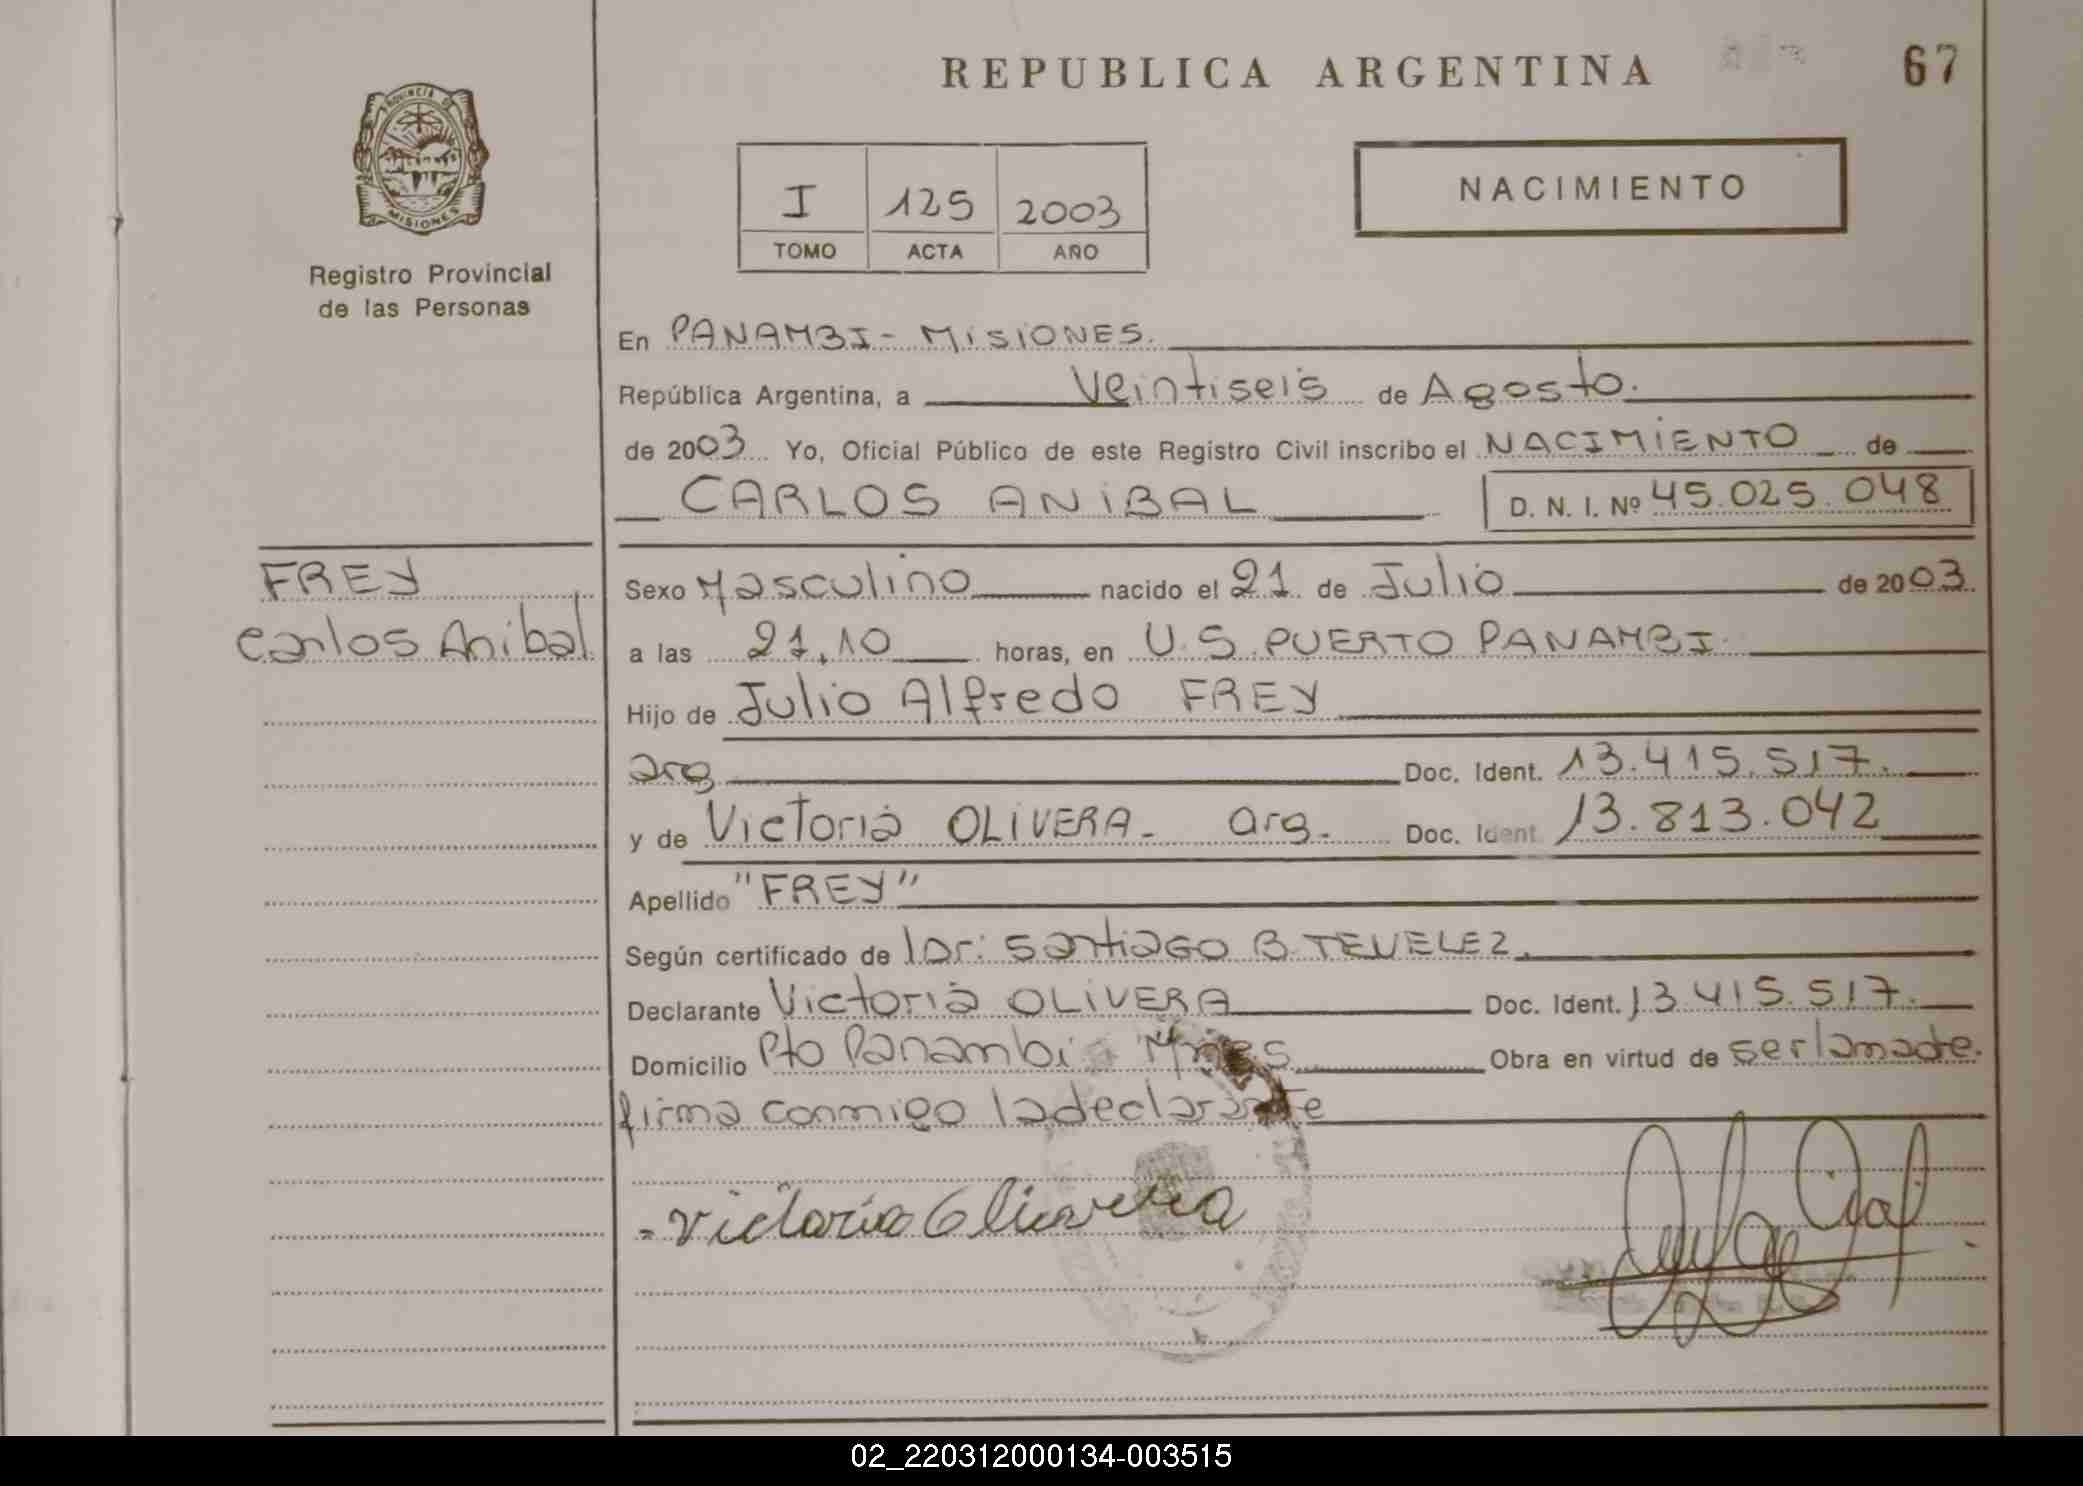 REPUBLICA ARGENTINA
67
PROVINCIA DE
MISIONES
Registro Provincial
de las Personas
I 125 2003
TOMO ACTA AÑO
NACIMIENTO
En PANAMBI - MISIONES.
República Argentina, a Veintiseis de Agosto.
de 2003 Yo, Oficial Público de este Registro Civil inscribo el NACIMIENTO de
CARLOS ANIBAL
D. N. I. Nº 45.025.048
FREY
Carlos Anibal
Sexo Masculino nacido el 21 de Julio de 2003.
a las 21,10 horas, en U.S. PUERTO PANAMBI.
Hijo de Julio Alfredo FREY
arg Doc. Ident. 13.415.517.
y de Victoria OLIVERA - arg. Doc. Ident. 13.813.042
Apellido "FREY"
Según certificado de Dr: Santiago B. TEVELEZ.
Declarante Victoria OLIVERA Doc. Ident. 13.415.517.
Domicilio Pto Panambi Mnes Obra en virtud de ser la madre.
firma conmigo la declarante
- Victoria Olivera
02_220312000134-003515